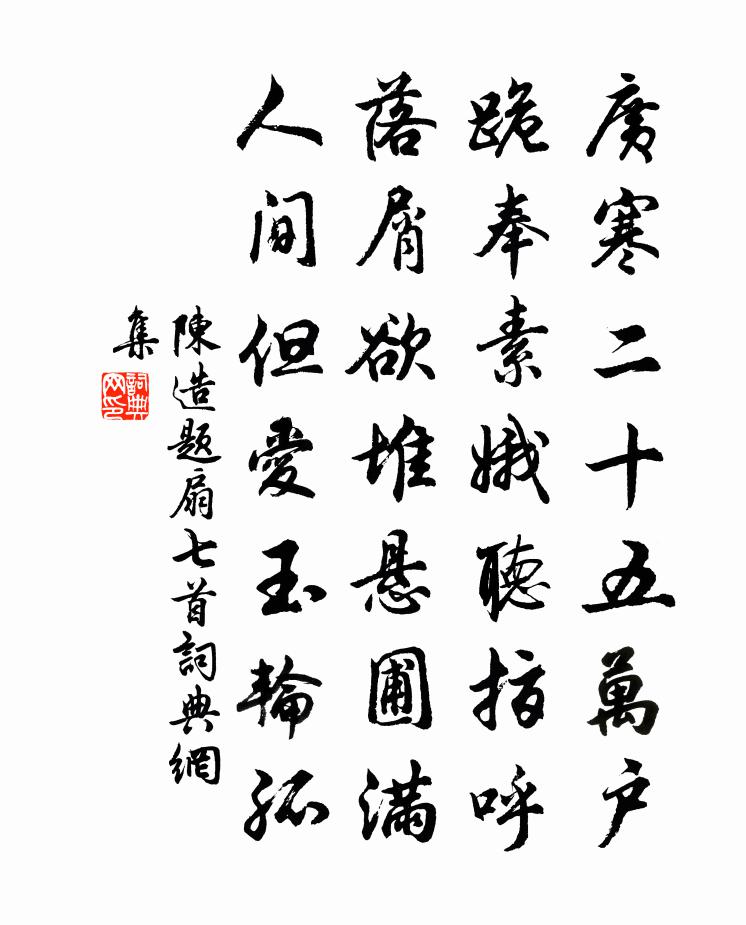 廣寒二十五萬户
跪奉素娥聽指呼
落屑欲堆悬圃满
人间但愛玉輪孤
陳造题扇七首詞典網
集
詞典网印